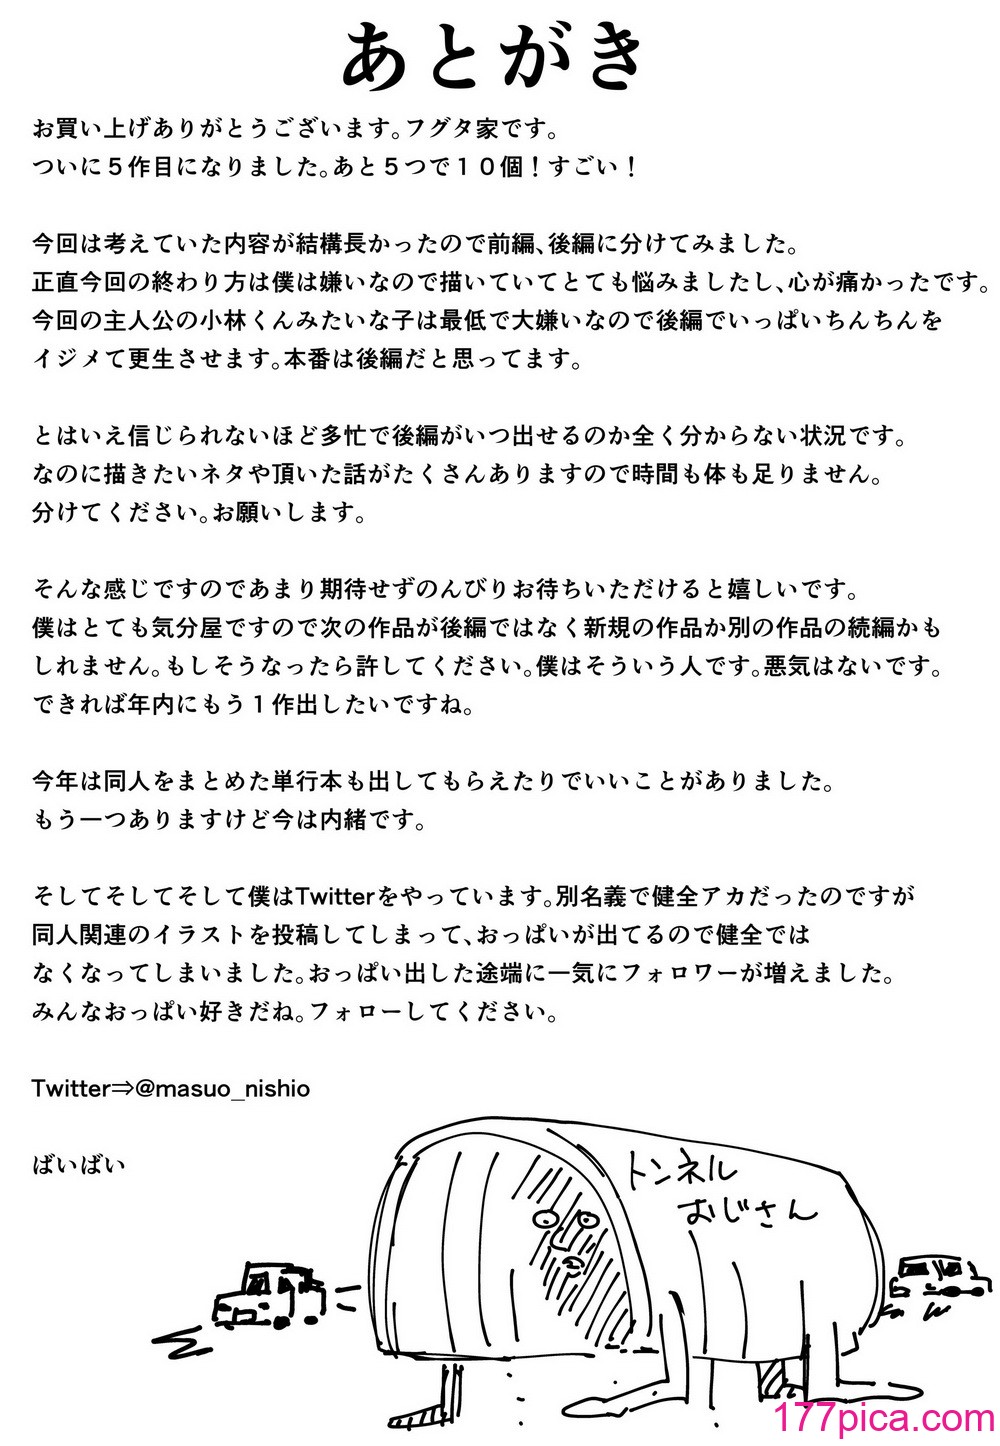 あとがき
お買い上げありがとうございます。フグタ家です。
ついに５作目になりました。あと５つで１０個！すごい！
今回は考えていた内容が結構長かったので前編、後編に分けてみました。
正直今回の終わり方は僕は嫌いなので描いていてとても悩みましたし、心が痛かったです。
今回の主人公の小林くんみたいな子は最低で大嫌いなので後編でいっぱいちんちんを
イジメて更生させます。本番は後編だと思ってます。
とはいえ信じられないほど多忙で後編がいつ出せるのか全く分からない状況です。
なのに描きたいネタや頂いた話がたくさんありますので時間も体も足りません。
分けてください。お願いします。
そんな感じですのであまり期待せずのんびりお待ちいただけると嬉しいです。
僕はとても気分屋ですので次の作品が後編ではなく新規の作品か別の作品の続編かも
しれません。もしそうなったら許してください。僕はそういう人です。悪気はないです。
できれば年内にもう１作出したいですね。
今年は同人をまとめた単行本も出してもらえたりでいいことがありました。
もう一つありますけど今は内緒です。
そしてそしてそして僕はTwitterをやっています。別名義で健全アカだったのですが
同人関連のイラストを投稿してしまって、おっぱいが出てるので健全では
なくなってしまいました。おっぱい出した途端に一気にフォロワーが増えました。
みんなおっぱい好きだね。フォローしてください。
Twitter⇒@masuo_nishio
ばいばい
トンネル
おじさん
177pica.com